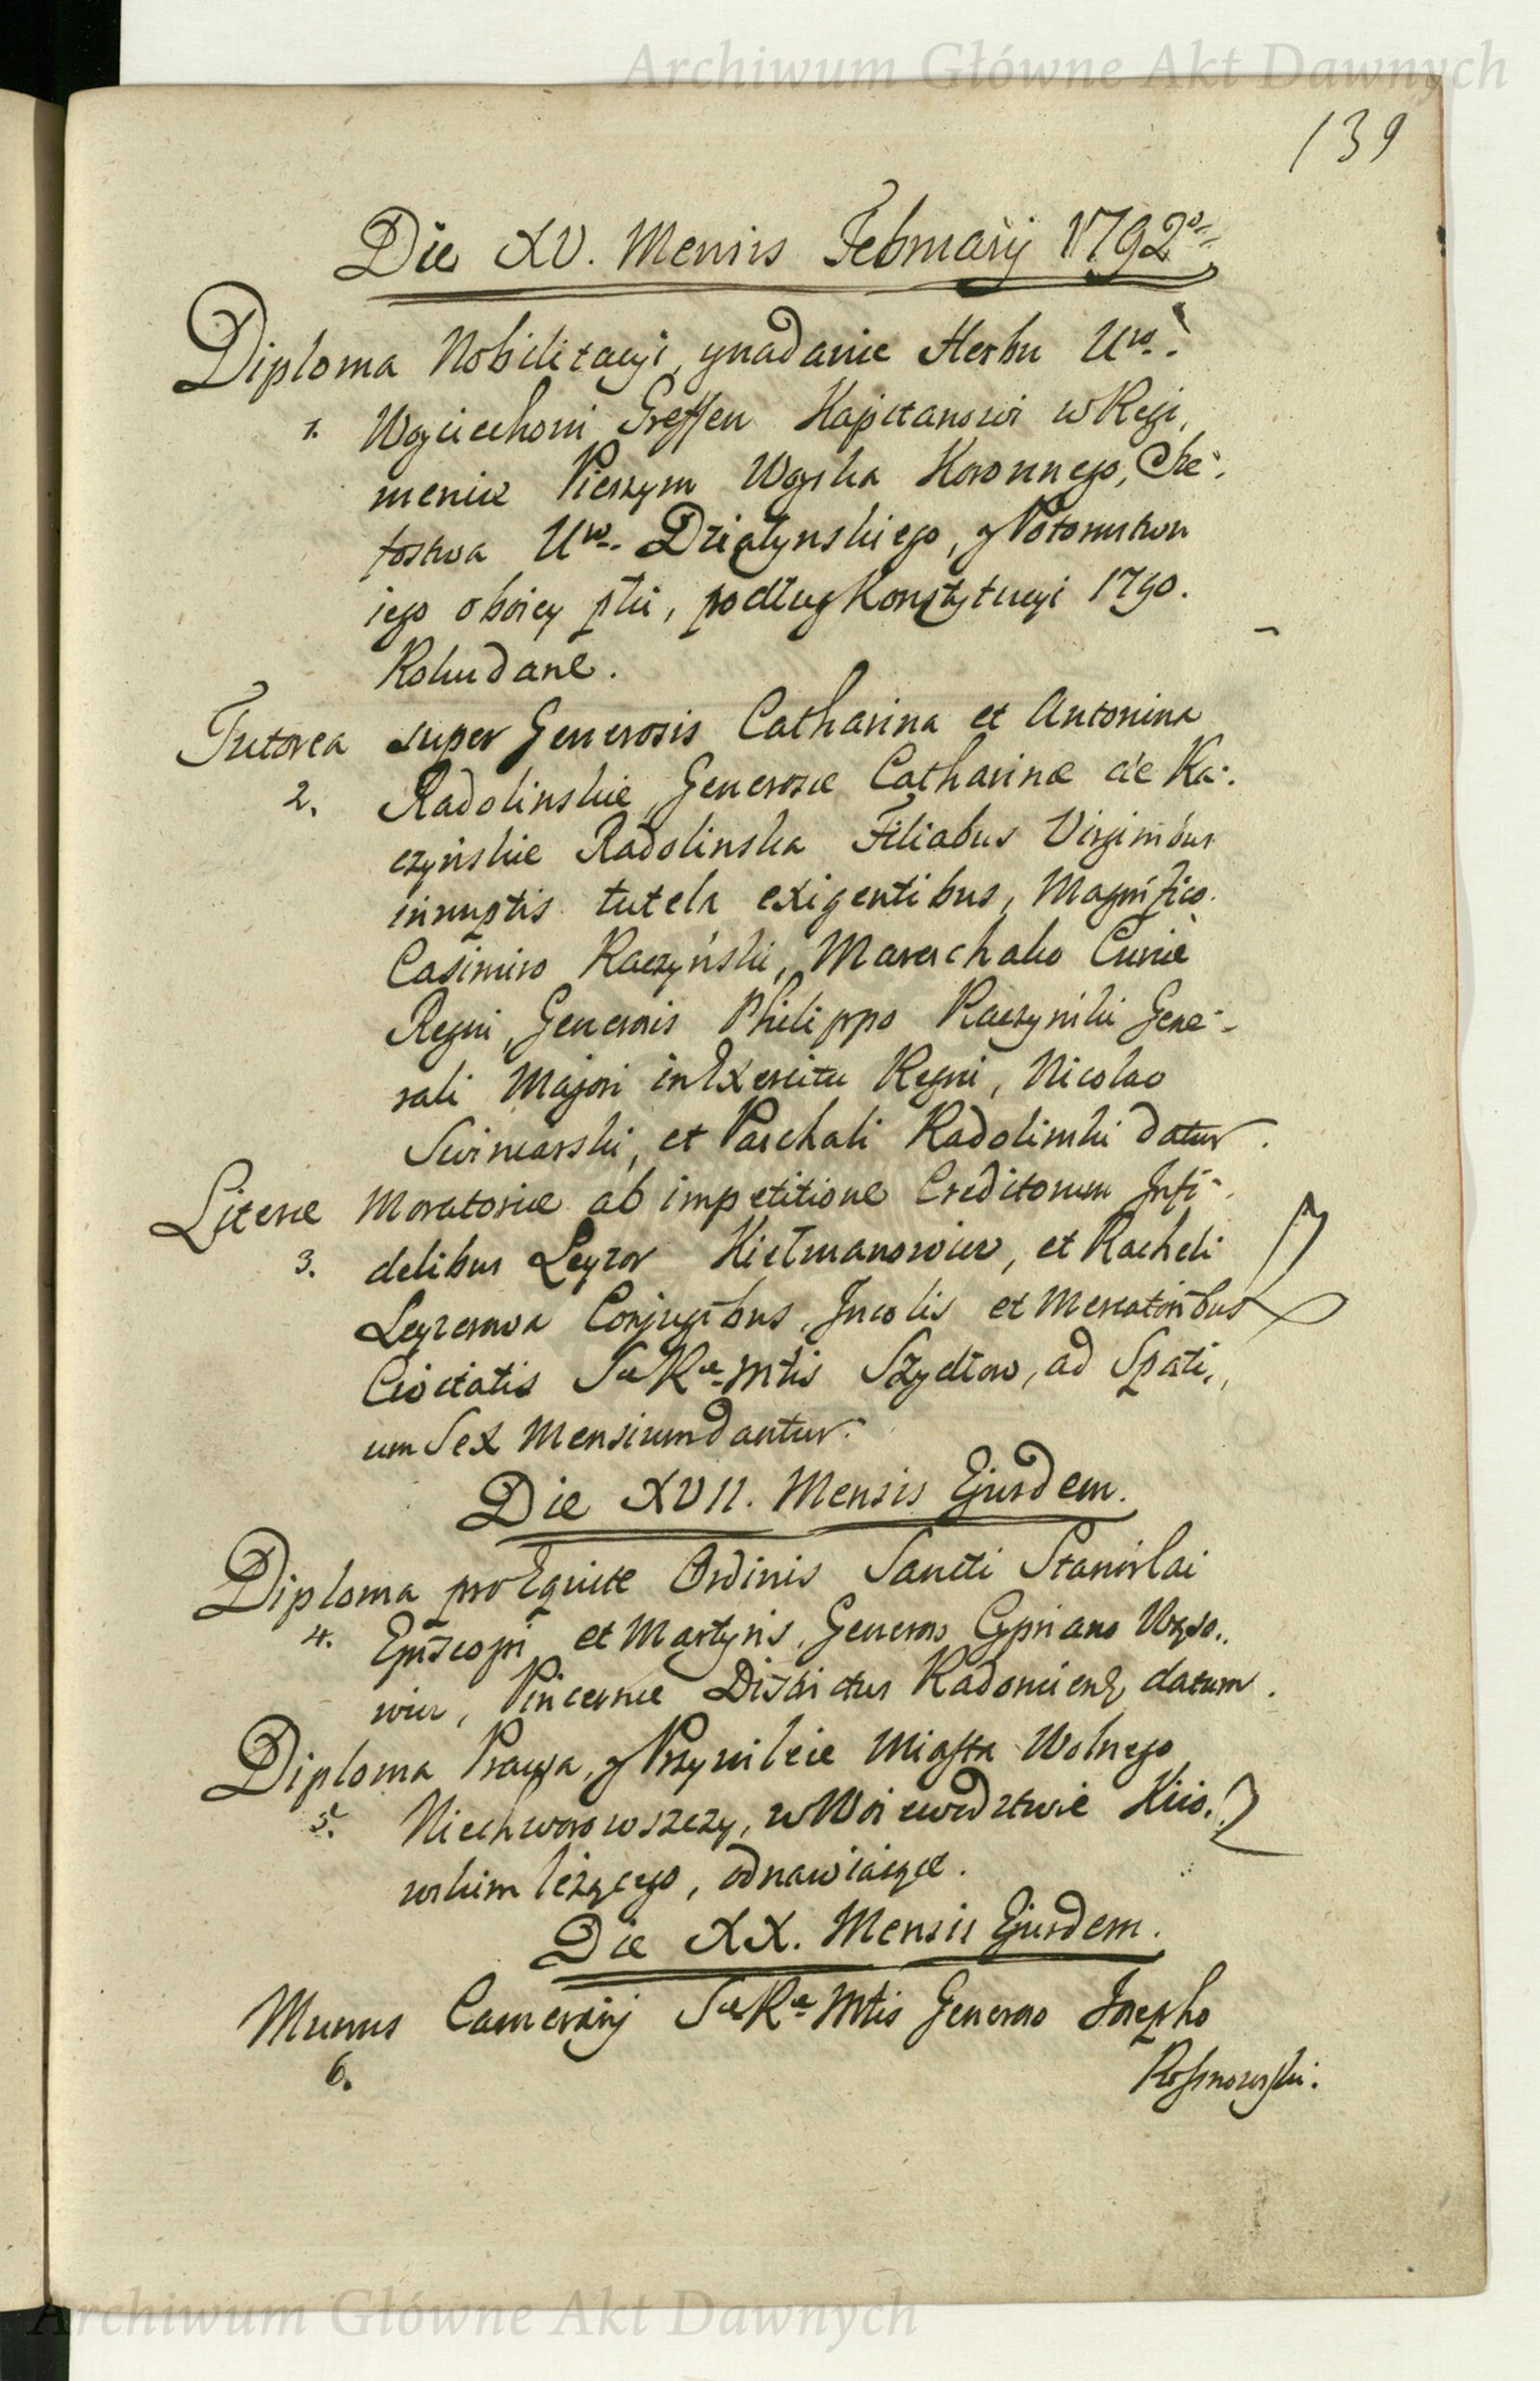 Archiwum Główne Akt Dawnych
139
Die XV. Mensis Februarij 1792do
Diploma Nobilitacyi, y nadanie Herbu Uro:
1. Woyciechowi Greffen Kapitanowi w Regi,
mencie Pieszym Woyska Koronnego, Sze:
fostwa Uro. Działynskiego, y Potomstwu
iego oboiey płci, podług Konstytucyi 1790.
Roku dane.
Tutorea super Generosis Catharina et Antonina
2. Radolinskie, Generosæ Catharinæ de Ra:
czyńskie Radolinska Filiabus Virginibus
innuptis tutela exigentibus, Magnifico.
Casimiro Raczyński, Mareschalco Curiæ
Regni, Generosis Philippo Raczynski Gene:
rali Majori in Exercitu Regni, Nicolao
Swinarski, et Paschali Radolinski datur.
Literæ Moratoriæ ab impetitione Creditorum Infi:
3. delibus Leyzor Hietmanowicz, et Racheli
Leyzerowa Conjugibus, Incolis et Mercatoribus
Civitatis Sæ Ræ Mtis Szydłow, ad Spati,,
um Sex Mensium dantur.
Die XVII. Mensis Ejusdem.
Diploma pro Equite Ordinis Sancti Stanislai
4. Episcopi et Martyris, Generoso Cypriano
wicz, Pincernæ Districtus Radomiens, datum.
Diploma Prawa, y Przywileie Miasta Wolnego
5. Niechworowszczy, w Woiewodztwie Kiio.
wskim leżącego, odnawiaiące.
Die XX. Mensis Ejusdem.
Munus Camerarij Sæ Ræ Mtis Generoso Josepho
6.
Rossnowski.
Archiwum Główne Akt Dawnych